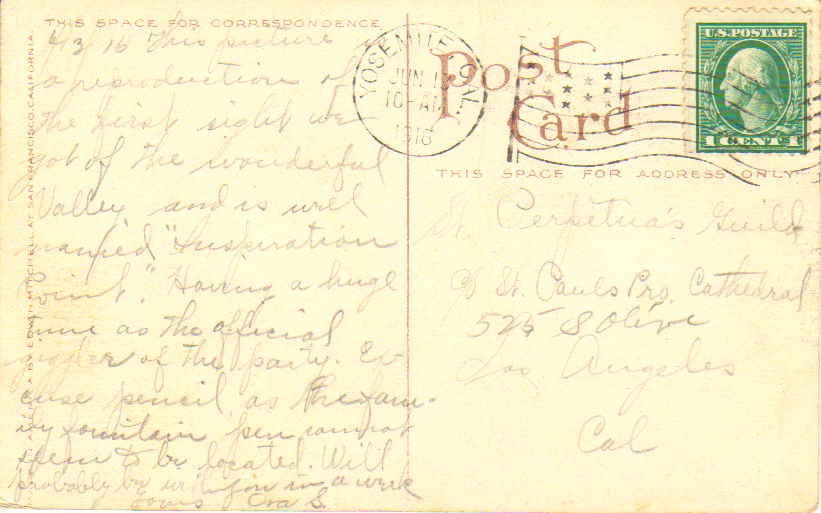 THIS SPACE FOR CORRESPONDENCE
This picture
a reproduction of
the first sight we
got of the wonderful
Valley and is well
named "Inspiration
Point." Having a huge
time as the official
of the party. Ex
cuse pencil as the fam-
ily fountain pen cannot
seem to be located. Will
probably be in a week
Yours S.
YOSEMITE, CAL.
JUN
10-AM
1916
Post
Card
U.S. POSTAGE
1 CENT 1
THIS SPACE FOR ADDRESS ONLY
St. Perpetua's Guild
c/o St. Pauls Pro. Cathedral
525 S Olive
Los Angeles
Cal
MITCHELL AT SAN FRANCISCO, CALIFORNIA